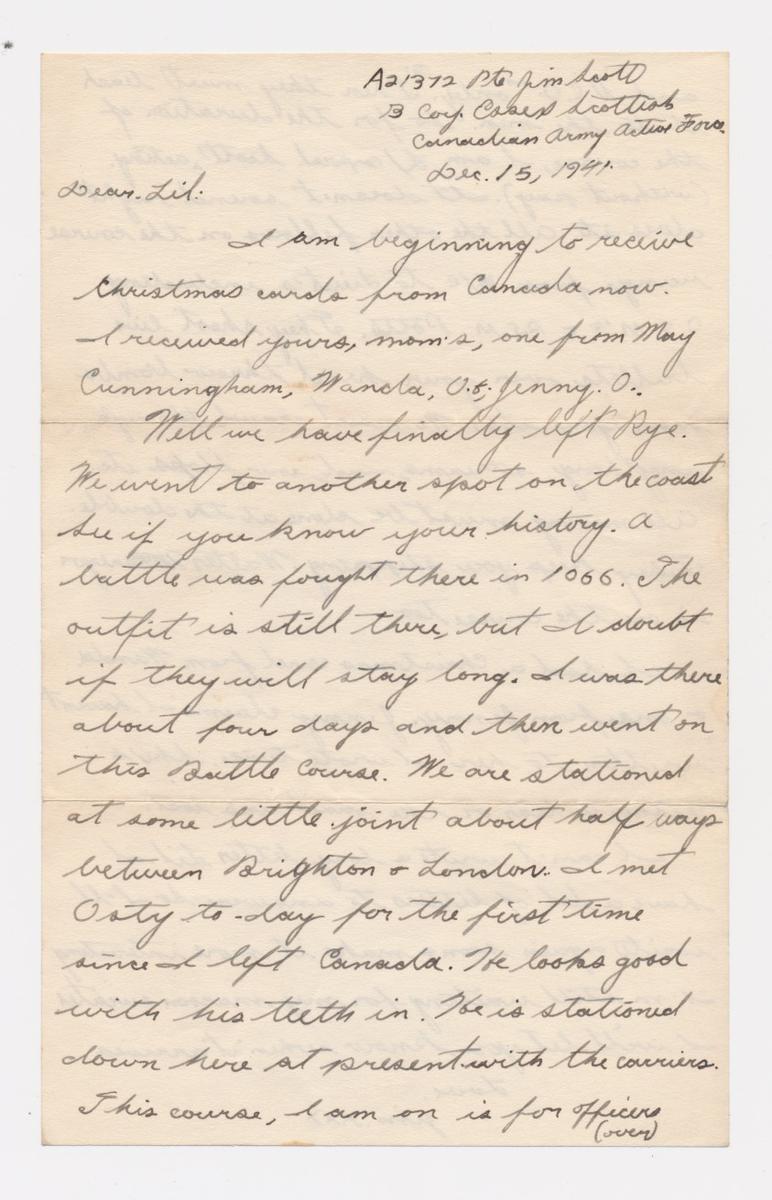 A21372 Pte Jim Scott
B Coy. Essex Scottish
Canadian Army Active Force
Dec. 15, 1941.
Dear Lil:
I am beginning to receive
Christmas cards from Canada now.
I received yours, mom's, one from May
Cunningham, Wanda, O. &, Jenny. O..
Well we have finally left Rye.
We went to another spot on the coast
See if you know your history. A
battle was fought there in 1066. The
outfit is still there, but I doubt
if they will stay long. I was there
about four days and then went on
this Battle Course. We are stationed
at some little joint about half ways
between Brighton & London. I met
Osty to-day for the first time
since I left Canada. He looks good
with his teeth in. He is stationed
down here at present with the carriers.
This course, I am on is for officers
(over)